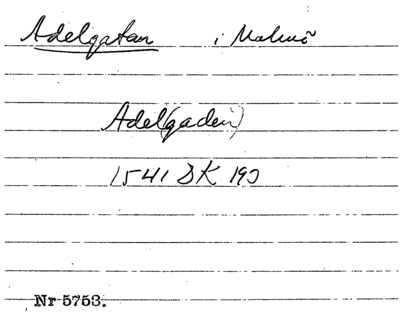 Adelgatan i Malmö
Adel(gaden)
1541 DK 190
Nr 5753.